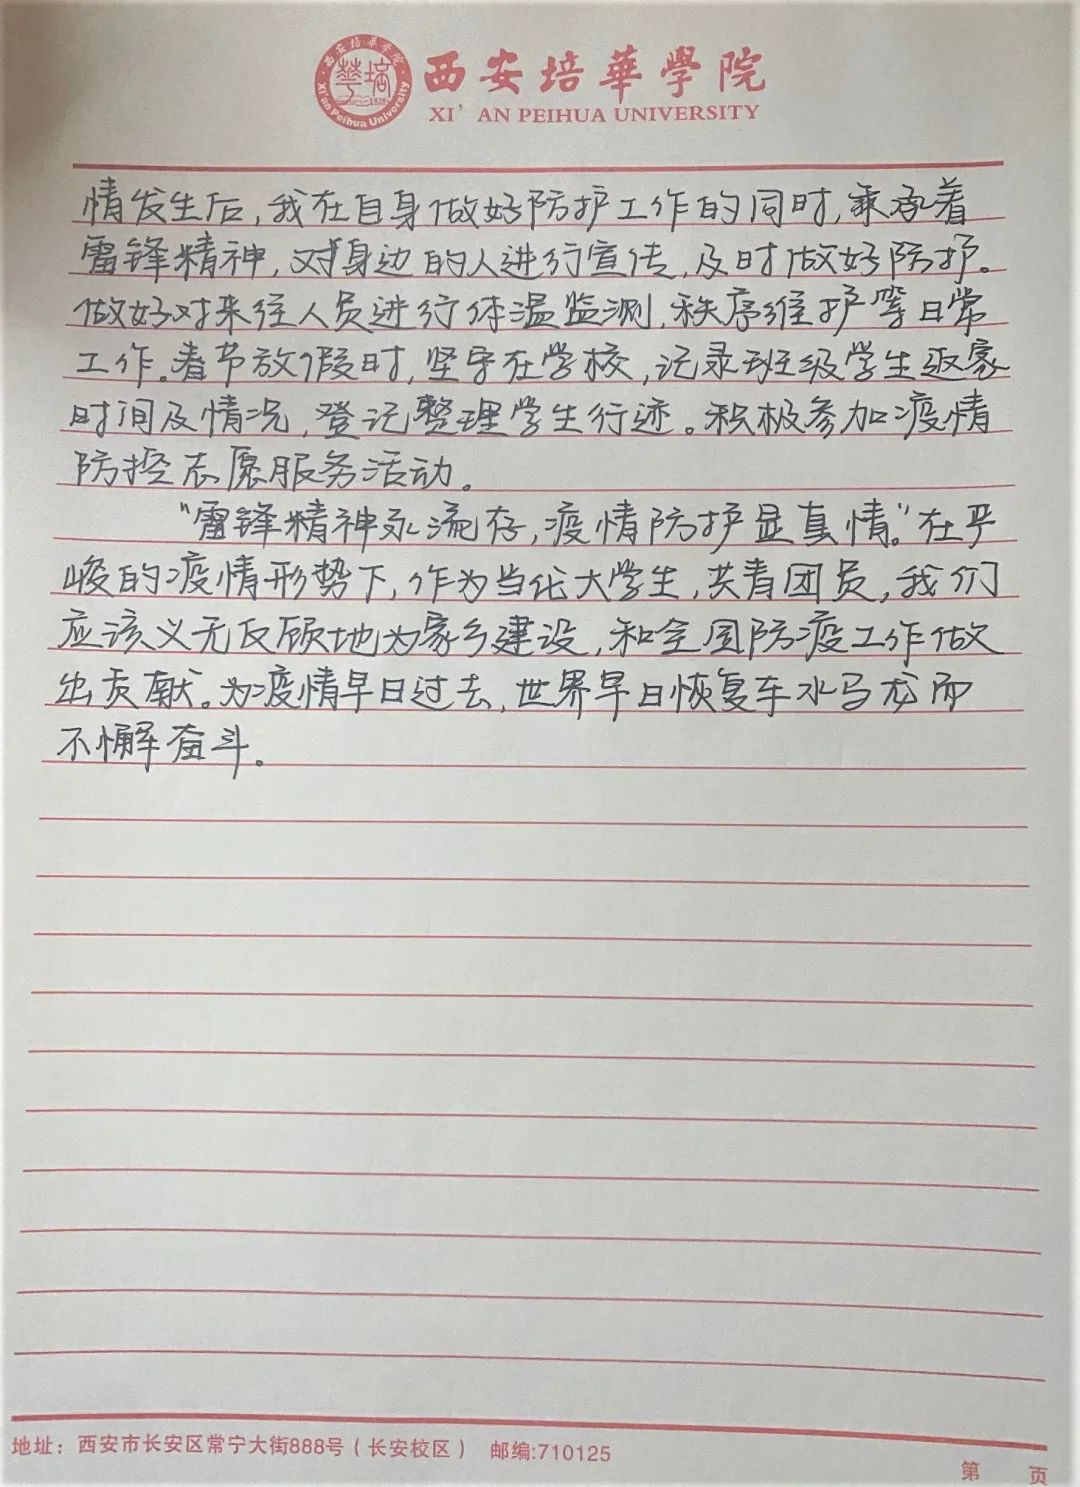 西安培華學院
XI'AN PEIHUA UNIVERSITY
西安培华学院
Xi'an Peihua University
1928
情发生后,我在自身做好防护工作的同时,秉承着
雷锋精神,对身边的人进行宣传,及时做好防护。
做好对来往人员进行体温监测,秩序维护等日常
工作。春节放假时,坚守在学校,记录班级学生返家
时间及情况,登记整理学生行迹。积极参加疫情
防控志愿服务活动。
“雷锋精神永流存,疫情防护显真情。”在严
峻的疫情形势下,作为当代大学生,共青团员,我们
应该义无反顾地为家乡建设,和全国防疫工作做
出贡献。为疫情早日过去,世界早日恢复车水马龙而
不懈奋斗。
地址：西安市长安区常宁大街888号（长安校区） 邮编:710125
第 页